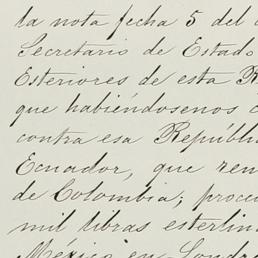 la nota fecha 5 del
Secretario de Estado
Exteriores de esta R
que habiéndosenos c
contra esa Repúbli
Ecuador, que ren
de Colombia; proce
mil libras esterlin
México en Londr